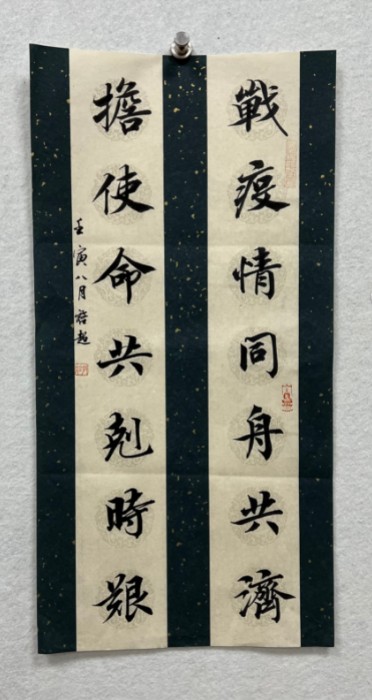 戰疫情同舟共濟
擔使命共剋時艱
壬寅八月啟超